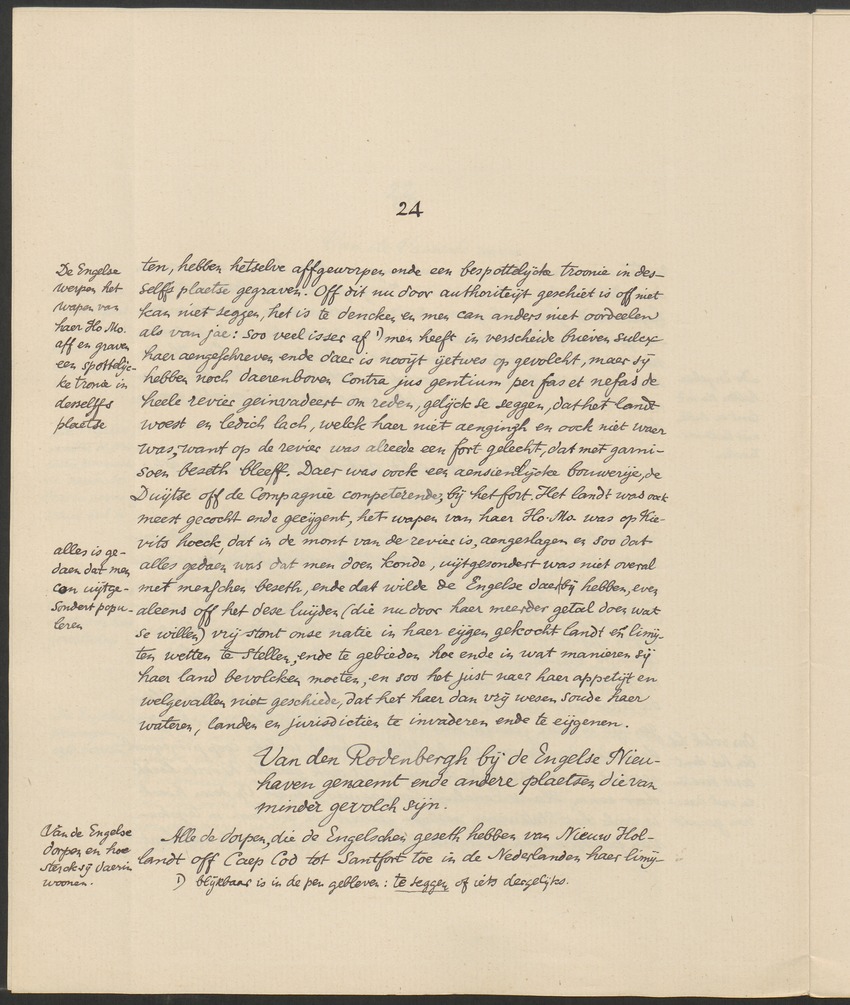 24
De Engelse
werpen het
wapen van
haer Ho. Mo.
aff en graven
een spottelijc-
ke tronie in
desselffs
plaetse
ten, hebben hetselve affgeworpen ende een bespottelijcke troonie in des-
selffs plaetse gegraven. Off dit nu door authoriteijt geschiet is off niet
kan niet seggen, het is te dencken en men can anders niet oordeelen
als van jae: soo veel isser af 1) men heeft in verscheide brieven sulcx
haer aengeschreven ende daer is nooijt ijetwes op gevolcht, maer sij
hebben noch daerenboven contra jus gentium per fas et nefas de
heele revier geinvadeert om reden, gelijck se seggen, dat het landt
woest en ledich lach, welck haer niet aengingh en oock niet waer
was, want op de revier was alreede een fort gelecht, dat met garni-
soen beseth bleeff. Daer was oock een aensienlijcke bouwerije, de
Duijtse off de Compagnie competerende, bij het fort. Het landt was ook
meest gecocht ende geeijgent, het wapen van haer Ho. Mo. was op Kie-
vits hoeck, dat in de mont van de revier is, aengeslagen en soo dat
alles gedaen was dat men doen konde, uijtgesondert was niet overal
met menschen beseth, ende dat wilde de Engelse daerbij hebben, even
aleens off het dese luijden (die nu door haer meerder getal doen wat
se willen) vrij stont onse natie in haer eijgen gekocht landt en limij-
ten wetten te stellen, ende te gebieden hoe ende in wat manieren sij
haer land bevolcken moeten, en soo het just naer haer appetijt en
welgevallen niet geschiede, dat het haer dan vrij wesen soude haer
wateren, landen en jurisdictien te invaderen ende te eijgenen.
alles is ge-
daen dat men
con uijtge-
sondert popu-
leren
Van den Rodenbergh bij de Engelse Nieu-
haven genaemt ende andere plaetsen die van
minder gevolch sijn.
Van de Engelse
dorpen en hoe
sterck sij daerin
woonen.
Alle de dorpen, die de Engelschen geseth hebben van Nieuw Hol-
landt off Caep Cod tot Santfort toe in de Nederlanden haer limij-
1) blijkbaar is in de pen gebleven: te seggen of iets dergelijks.